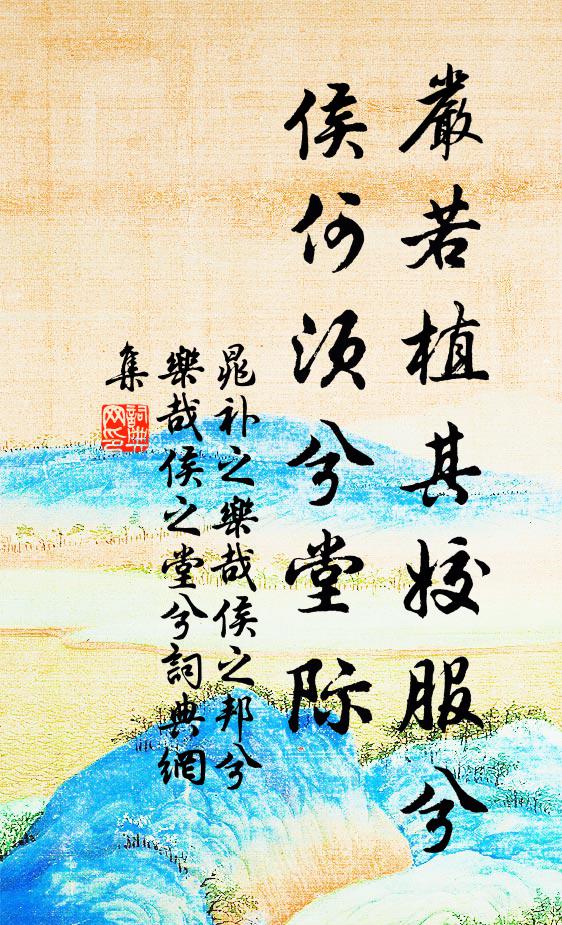 嚴若植其姣服兮
侯何须兮堂际
晁补之樂哉侯之邦兮
樂哉侯之堂兮詞典網
集
詞典
网印